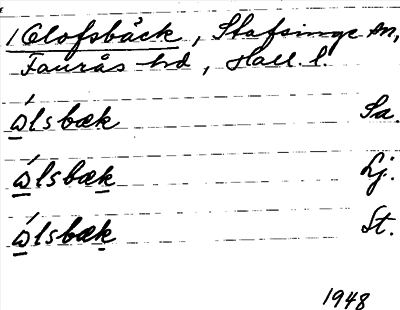 1 Olofsbäck, Stafsinge sn,
Faurås hd, Hall. l.
ώ̲lsbæk Sa.
ώ̲lsbæk̲ Lj.
ώ̲lsbæk̲ St.
1948